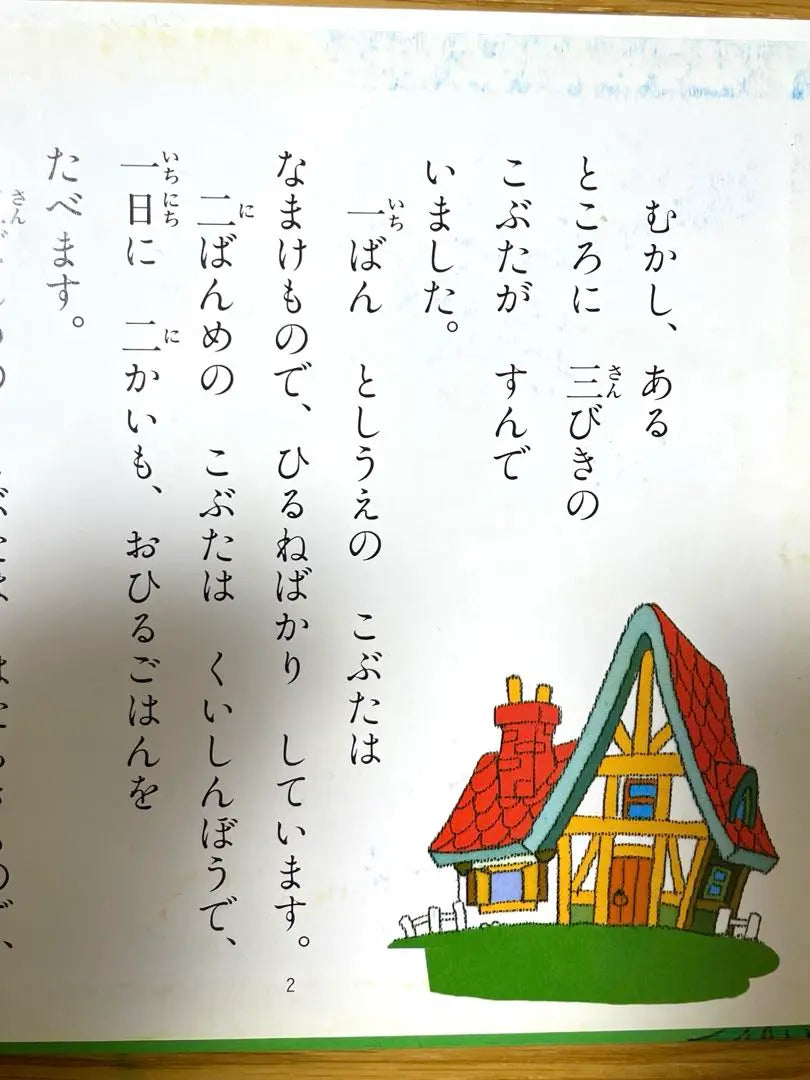 むかし、ある
ところに　三びきの
こぶたが　すんで
いました。
一ばん　としうえの　こぶたは
なまけもので、ひるねばかり　しています。
二ばんめの　こぶたは　くいしんぼうで、
一日に　二かいも、おひるごはんを
たべます。
2